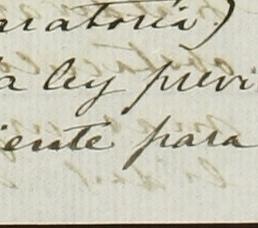 ratoria)
a ley previ
iente para